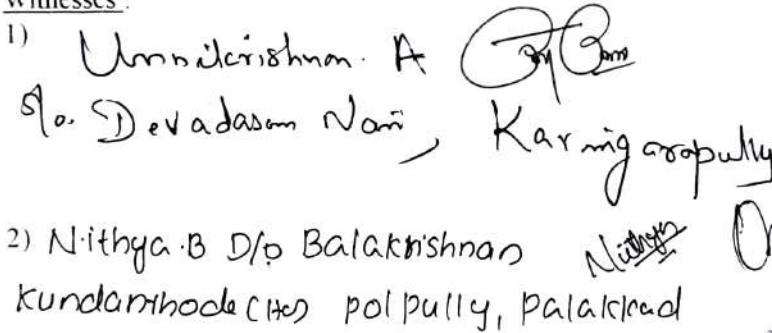 Witnesses :
1) Unnikrishnan. A
S/o. Devadasan Nair, Karingarapully
2) Nithya.B D/o Balakrishnan Nithya
Kundanthode (Ho) polpully, palakkad